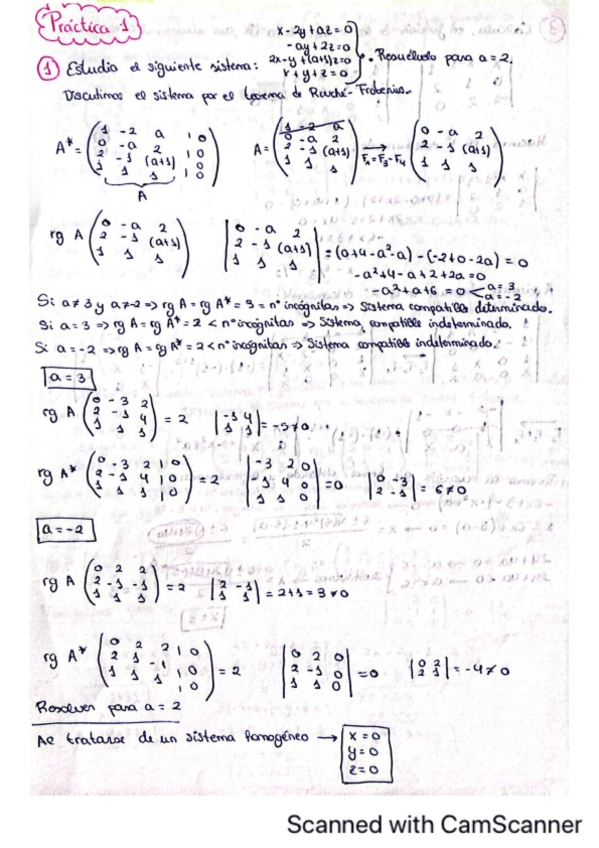 Práctica 1
x-2y+az=0
-ay+2z=0
① Estudia el siguiente sistema: 2x-y+(a+1)z=0 • Resuélvelo para a=2.
x+y+z=0
Discutimos el sistema por el teorema de Rouché-Frobenius.
A* = (1 -2 a | 0; 0 -a 2 | 0; 2 -1 (a+1) | 0; 1 1 1 | 0) A = (1 -2 a; 0 -a 2; 2 -1 (a+1); 1 1 1) → F₁=F₃-F₄ (0 -a 2; 2 -1 (a+1); 1 1 1)
A
rg A (0 -a 2; 2 -1 (a+1); 1 1 1) |0 -a 2; 2 -1 (a+1); 1 1 1| = (a+4-a²-a)-(-2+0-2a)=0
-a²+4-a+2+2a=0
-a²+a+6=0 < a=3 a=-2
Si a≠3 y a≠-2 => rg A = rg A* = 3 = nº incógnitas => Sistema compatible determinado.
Si a=3 => rg A = rg A* = 2 < nº incógnitas => Sistema compatible indeterminado.
Si a=-2 => rg A = rg A* = 2 < nº incógnitas => Sistema compatible indeterminado.
a=3
rg A (0 -3 2; 2 -1 4; 1 1 1) = 2 |-1 4; 1 1| = -5≠0
rg A* (0 -3 2 | 0; 2 -1 4 | 0; 1 1 1 | 0) = 2 |-3 2 0; -1 4 0; 1 1 0| = 0 |0 -3; 2 -1| = 6≠0
a=-2
rg A (0 2 2; 2 -1 -1; 1 1 1) = 2 |2 -1; 1 1| = 2+1=3≠0
rg A* (0 2 2 | 0; 2 1 -1 | 0; 1 1 1 | 0) = 2 |0 2 0; 2 -1 0; 1 1 0| = 0 |0 2; 2 1| = -4≠0
Resolver para a=2
Al tratarse de un sistema homogéneo → x=0
y=0
z=0
Scanned with CamScanner